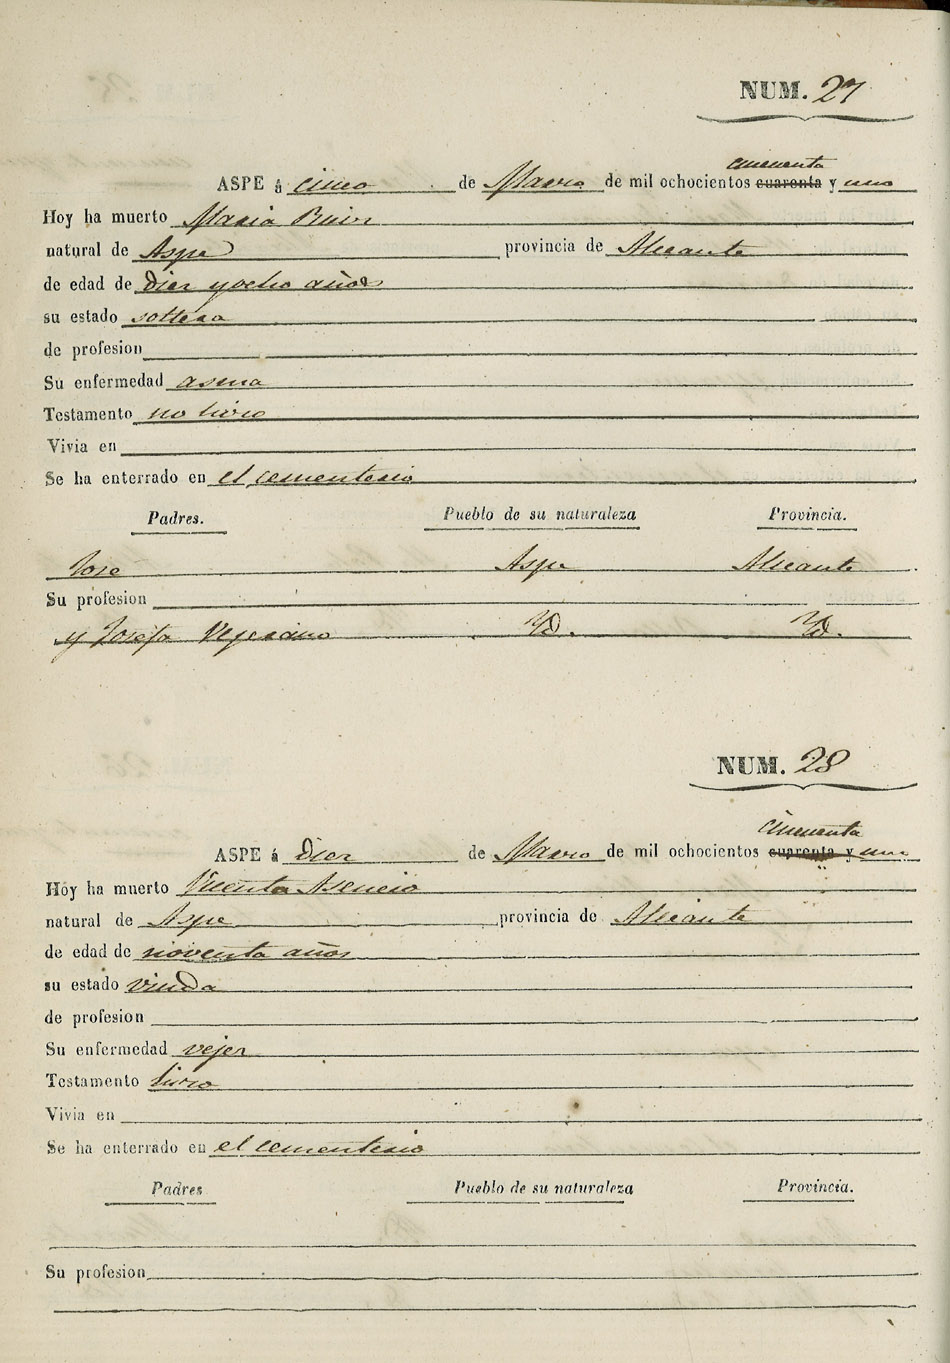 NUM. 27
cincuenta
ASPE á cinco de Marzo de mil ochocientos cuarenta y uno
Hoy ha muerto Maria
natural de Aspe provincia de Alicante
de edad de diez y ocho años
su estado soltera
de profesion
Su enfermedad asma
Testamento no hizo
Vivia en
Se ha enterrado en el cementerio
Padres. Pueblo de su naturaleza Provincia.
José Aspe Alicante
Su profesion
y Josefa Yd. Yd.
NUM. 28
cincuenta
ASPE á diez de Marzo de mil ochocientos cuarenta y uno
Hoy ha muerto Vicenta Asencio
natural de Aspe provincia de Alicante
de edad de noventa años
su estado viuda
de profesion
Su enfermedad vejez
Testamento hizo
Vivia en
Se ha enterrado en el cementerio
Padres Pueblo de su naturaleza Provincia.
Su profesion